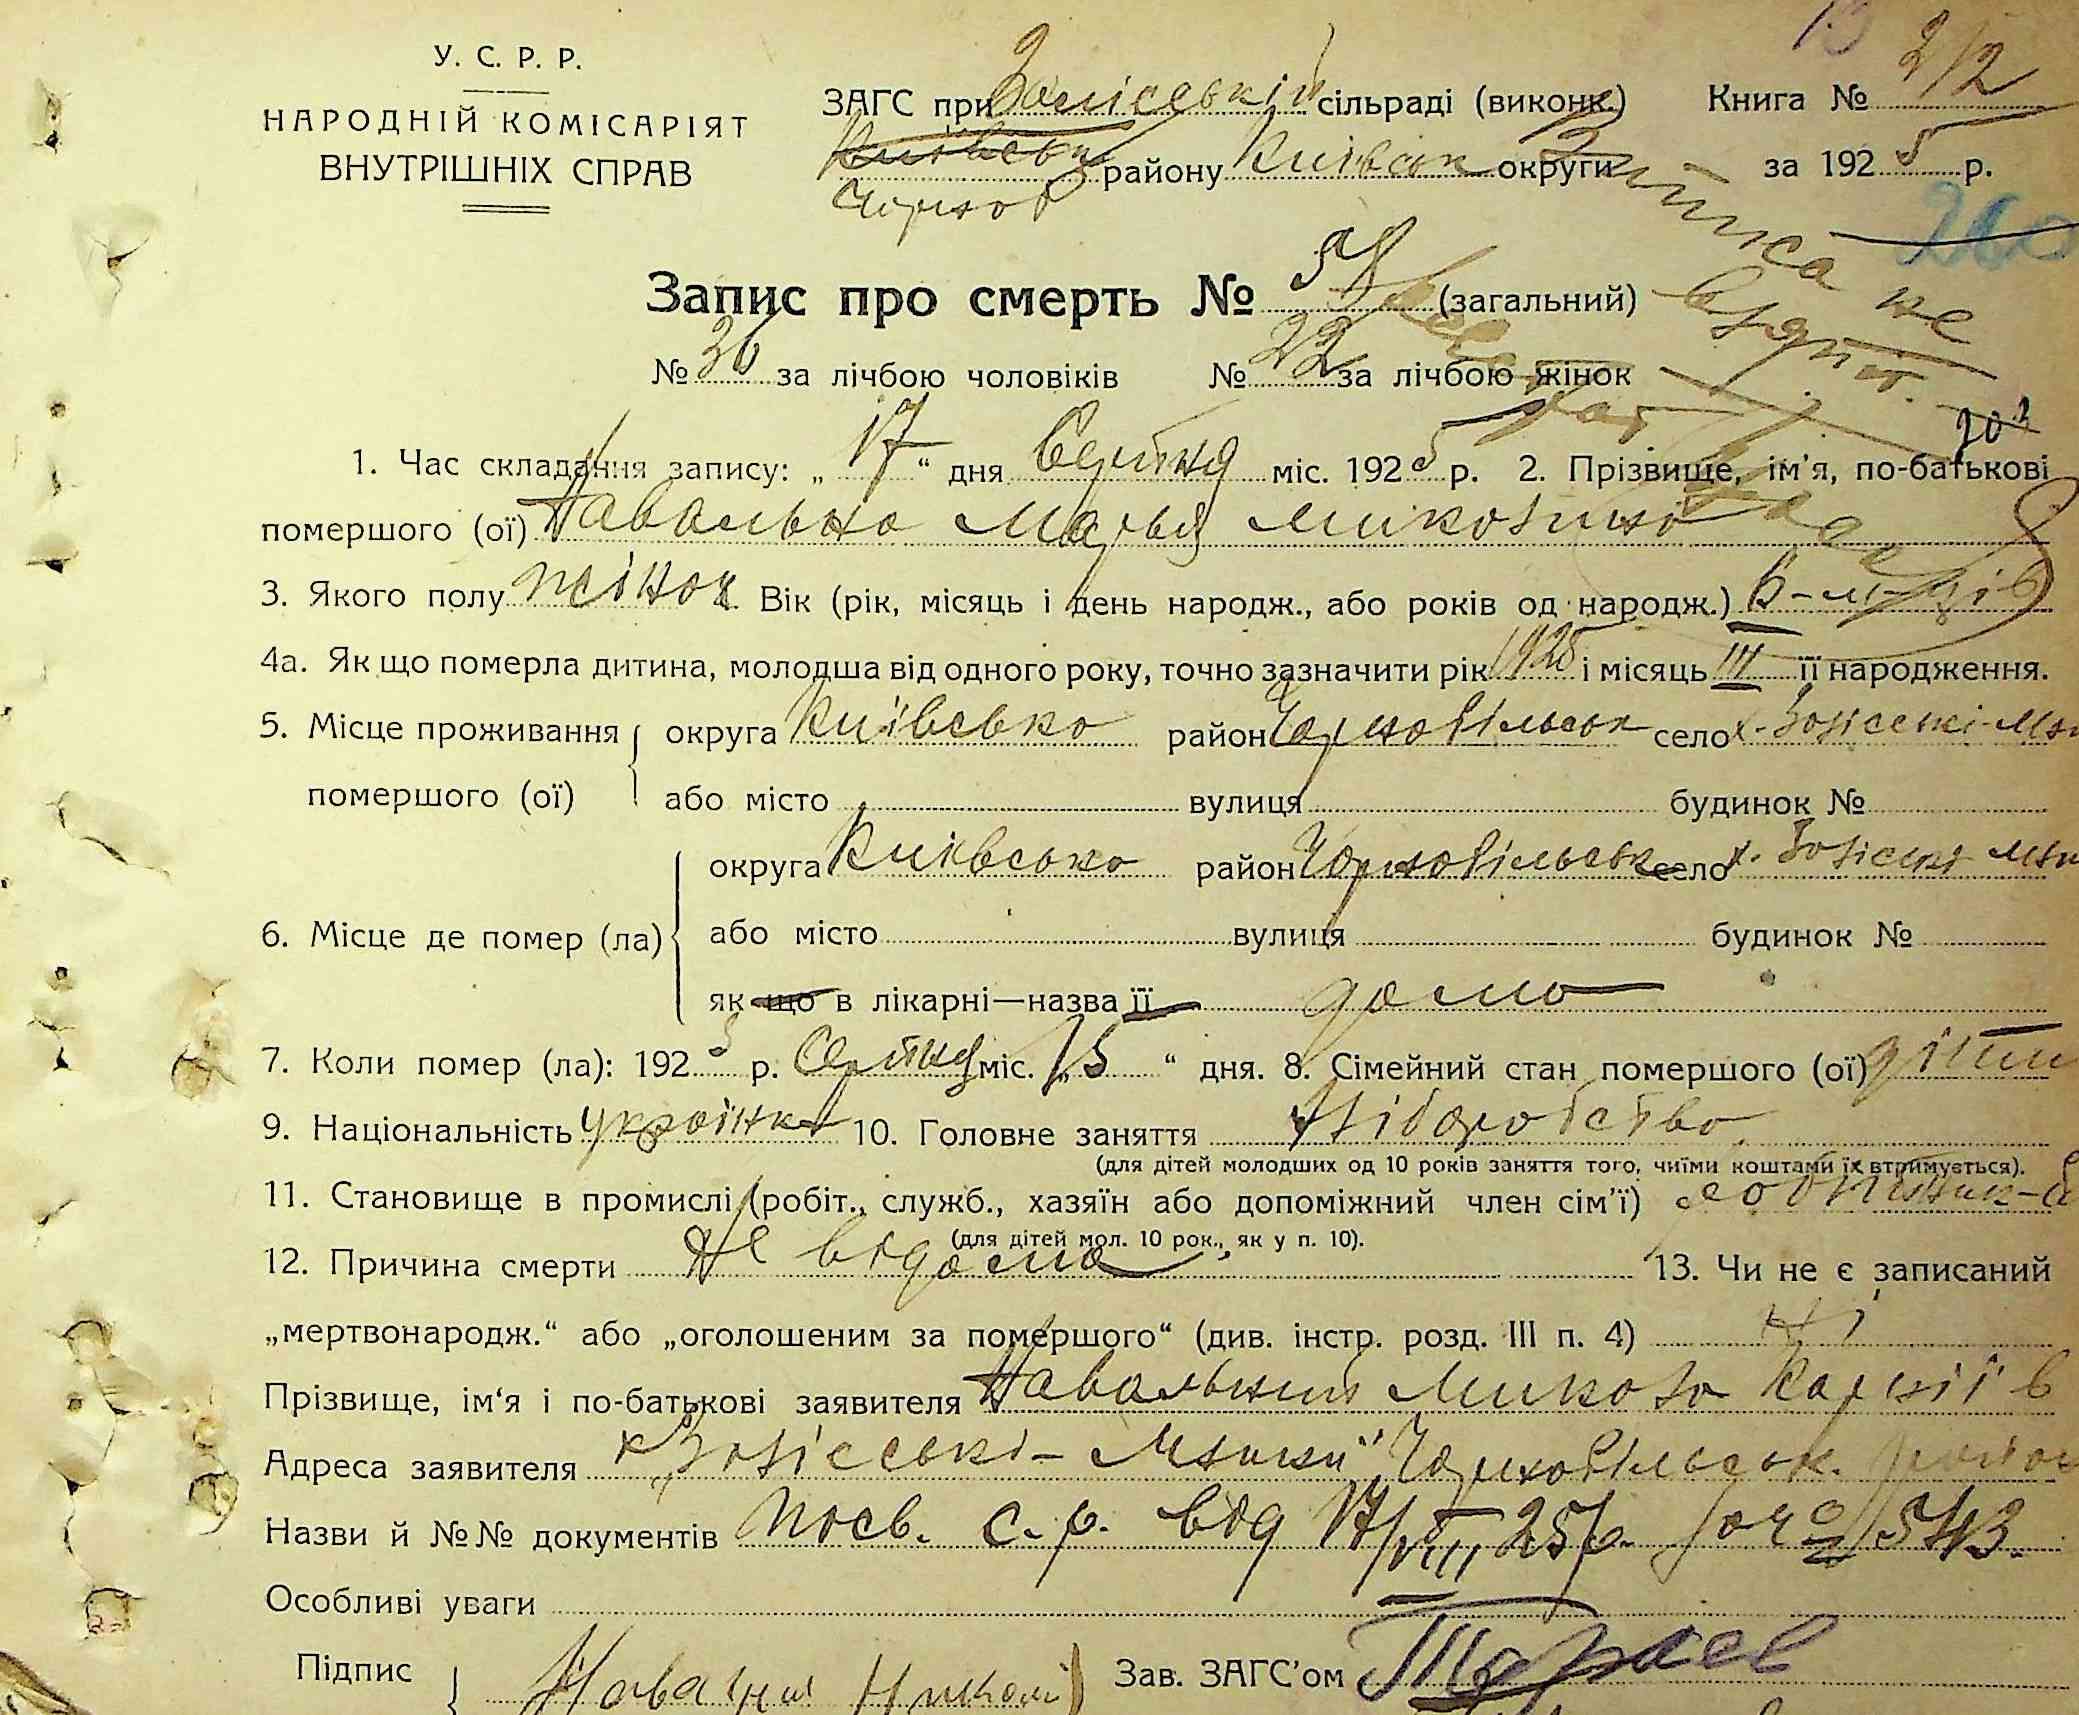 У. С. Р. Р.
НАРОДНІЙ КОМІСАРІЯТ
ВНУТРІШНІХ СПРАВ
ЗАГС при Заліській сільраді (виконк.) Книга № 2/2
Київськ району Київськ округи за 1925 р.
Чорноб
Виписа не
взята.
Запис про смерть № 58 (загальний)
№ 36 за лічбою чоловіків № 22 за лічбою жінок
1. Час складання запису: „17“ дня Серпня міс. 1925 р. 2. Прізвище, ім'я, по-батькові
помершого (ої) Навальна Марья Миколина
3. Якого полу жіноч Вік (рік, місяць і день народж., або років од народж.) 6-м-ців
4а. Як що померла дитина, молодша від одного року, точно зазначити рік 1925 і місяць III її народження.
5. Місце проживання округа Київсько район Чорнобільськ село
помершого (ої) або місто вулиця будинок №
округа Київсько район Чорнобільськ село
6. Місце де помер (ла) або місто вулиця будинок №
як що в лікарні—назва її дома
7. Коли помер (ла): 1925 р. Серпня міс. „15“ дня. 8. Сімейний стан помершого (ої)
9. Національність українка 10. Головне заняття хліборобство
(для дітей молодших од 10 років заняття того, чиїми коштами їх втримується).
11. Становище в промислі (робіт., служб., хазяїн або допоміжний член сім'ї)
(для дітей мол. 10 рок., як у п. 10).
12. Причина смерти Не відома 13. Чи не є записаний
„мертвонародж.“ або „оголошеним за помершого“ (див. інстр. розд. III п. 4) Ні
Прізвище, ім'я і по-батькові заявителя Навальний Микола Карніїв
Адреса заявителя Чорнобільськ. район
Назви й №№ документів посв. с. р. від 17/VIII 25 р. за № 543.
Особливі уваги
Підпис Зав. ЗАГС'ом